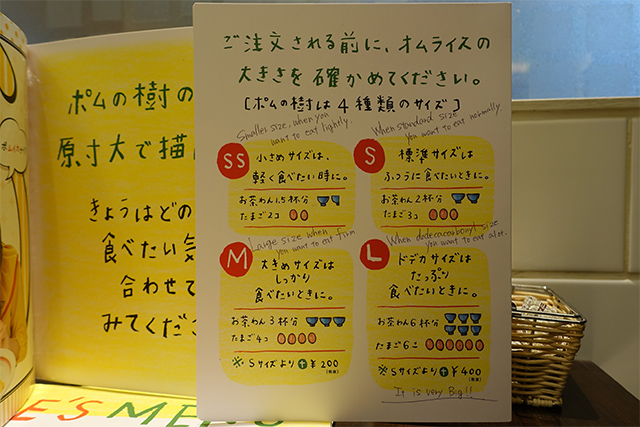 ポムの樹の
原寸大で描
きょうはどの
食べたい気
合わせて
みてくださ
E'S MENU
ご注文される前に、オムライスの
大きさを確かめてください。
[ポムの樹は4種類のサイズ]
Smaller size, when you
want to eat lightly.
SS
小さめサイズは、
軽く食べたい時に。
お茶わん1.5杯分
たまご2コ
When standard size
you want to eat normally.
S
標準サイズは
ふつうに食べたいときに。
お茶わん2杯分
たまご3コ
Large size when
you want to eat firm
M
大きめサイズは
しっかり
食べたいときに。
お茶わん3杯分
たまご4コ
※Sサイズより+¥200
(税抜)
When dodecacarbonyl size
you want to eat a lot.
L
ドデカサイズは
たっぷり
食べたいときに。
お茶わん6杯分
たまご6コ
※Sサイズより+¥400
(税抜)
It is very Big!!